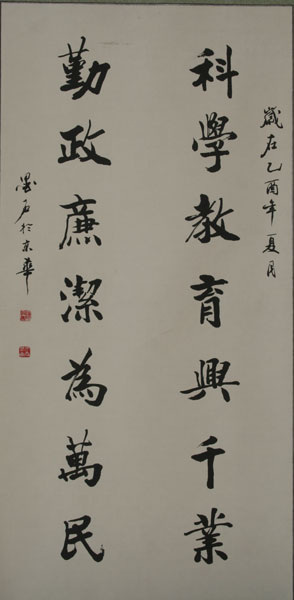 歲在乙酉年夏月
科學教育興千業
勤政廉潔為萬民
墨石於京華